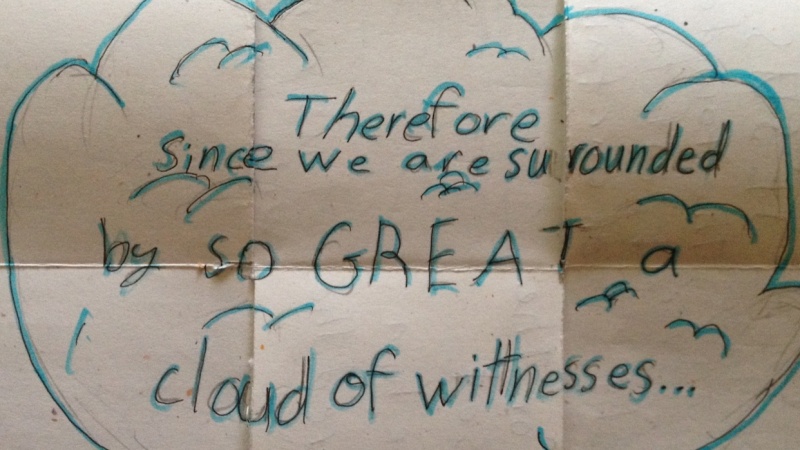 Therefore
since we are surrounded
by so GREAT a
cloud of wittnesses...